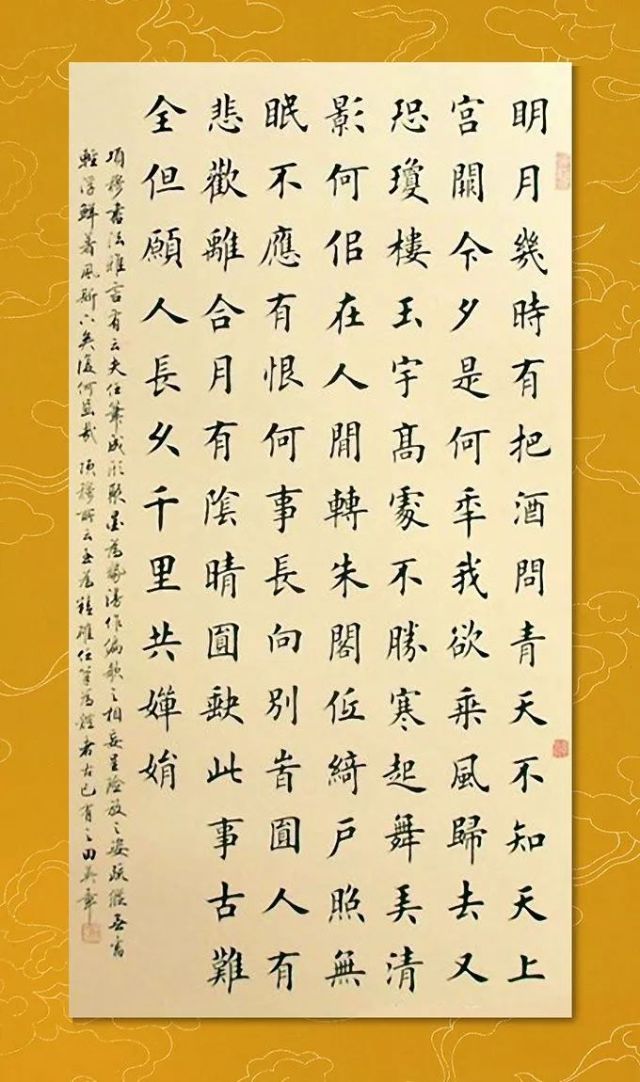 明月幾時有把酒問青天不知天上
宮闕今夕是何年我欲乘風歸去又
恐瓊樓玉宇高處不勝寒起舞弄清
影何佀在人間轉朱閣低綺戶照無
眠不應有恨何事長向別旹圓人有
悲歡離合月有陰晴圓缺此事古難
全但願人長久千里共嬋娟
項穆書法雅言有云夫任筆成形聚墨為勢漫作偏欹之相妄呈險放之姿疎縱無當
輕浮鮮著風斯下矣復何益哉 項穆所云至為精確任筆為體者古已有之田英章